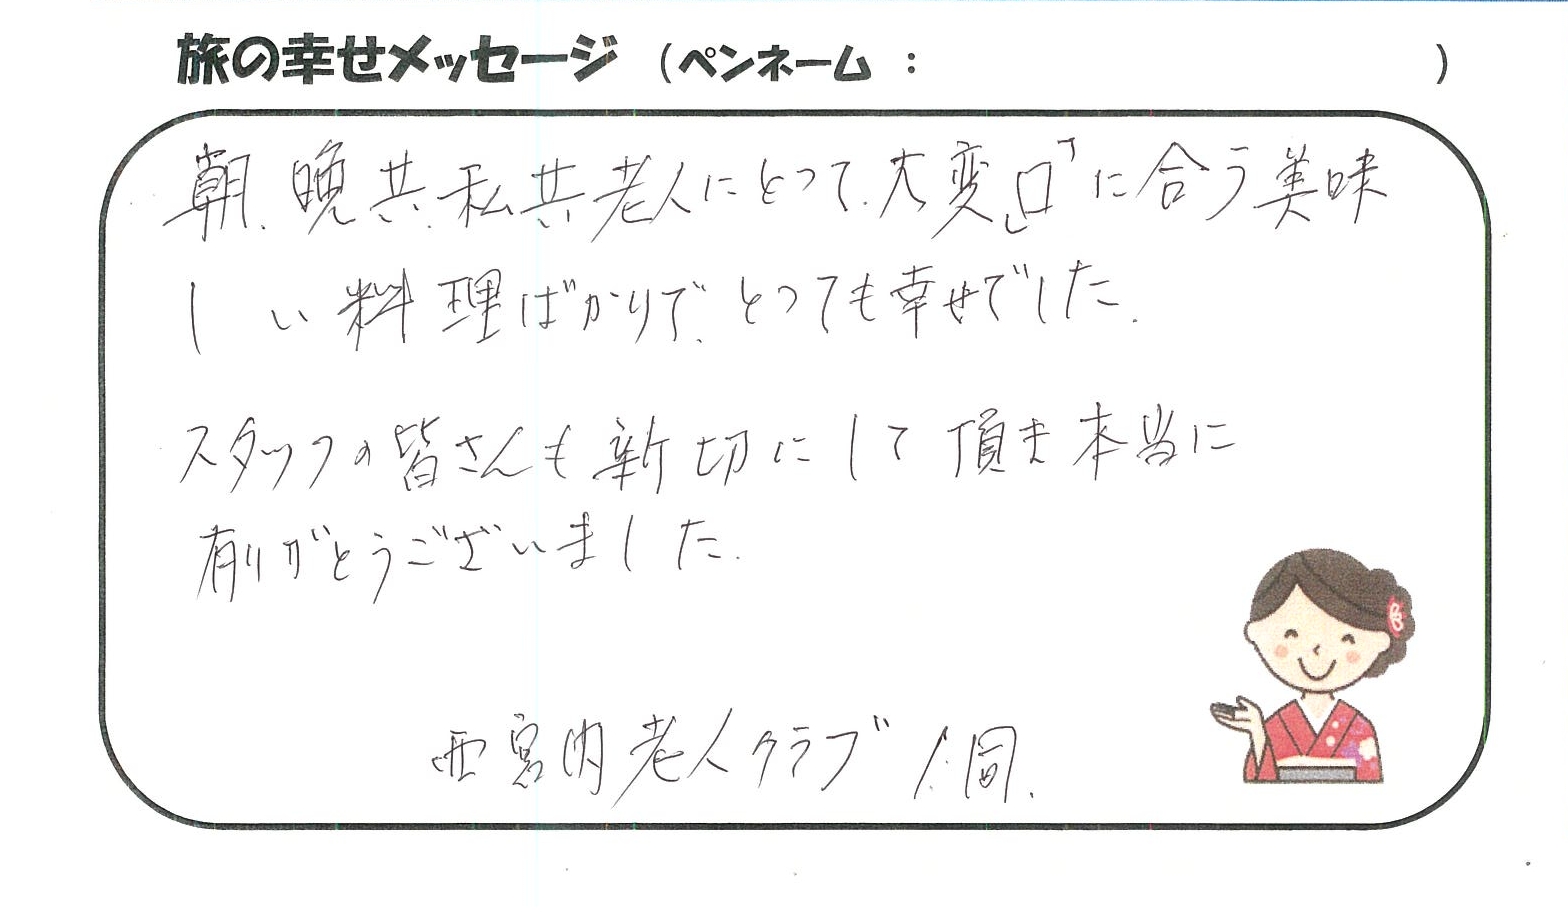 旅の幸せメッセージ （ペンネーム ： ）
朝、晩共、私共老人にとって、大変「口」に合う美味
しい料理ばかりで、とっても幸せでした。
スタッフの皆さんも新切にして頂き本当に
有りがとうございました。
西宮内老人クラブ 一同。